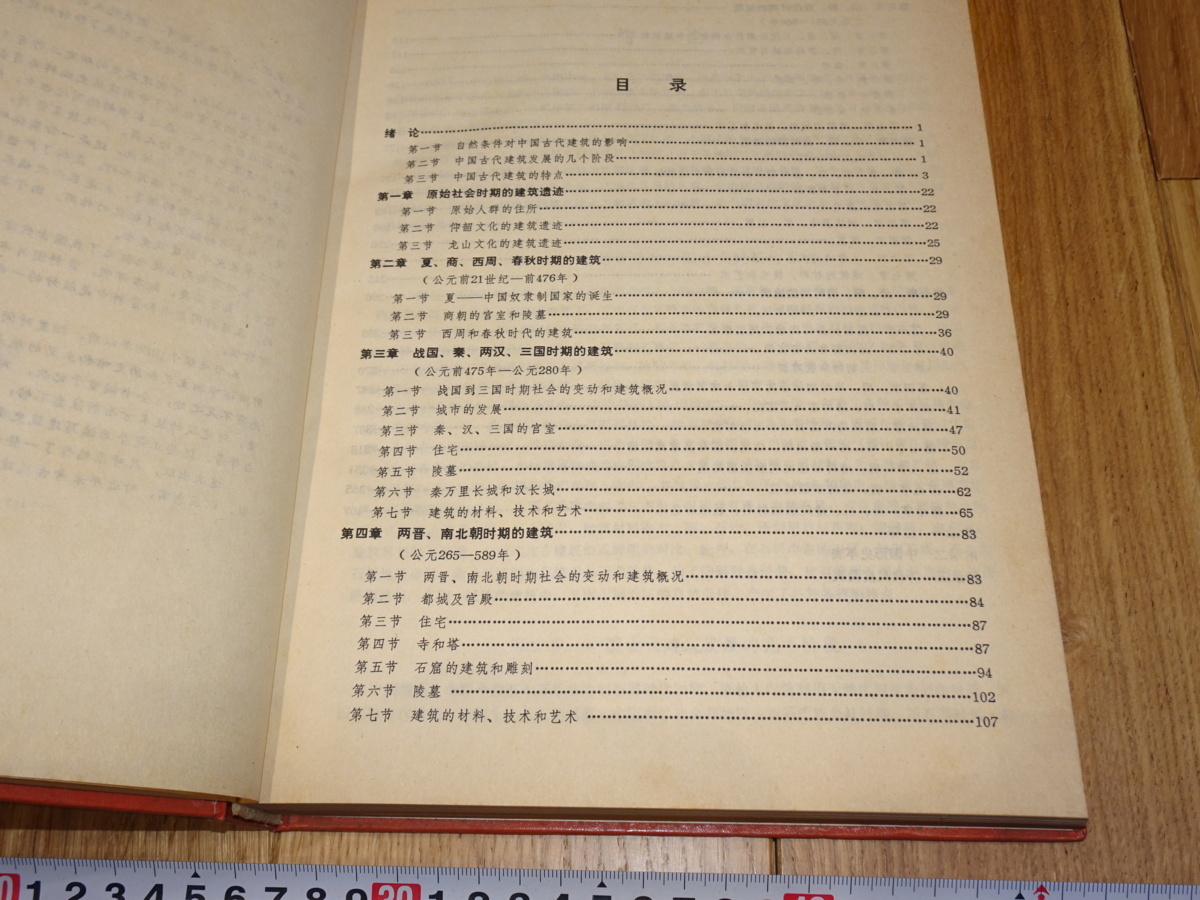 目 录
绪 论……1
第一节 自然条件对中国古代建筑的影响……1
第二节 中国古代建筑发展的几个阶段……1
第三节 中国古代建筑的特点……3
第一章 原始社会时期的建筑遗迹……22
第一节 原始人群的住所……22
第二节 仰韶文化的建筑遗迹……22
第三节 龙山文化的建筑遗迹……25
第二章 夏、商、西周、春秋时期的建筑……29
（公元前21世纪—前476年）
第一节 夏——中国奴隶制国家的诞生……29
第二节 商朝的宫室和陵墓……29
第三节 西周和春秋时代的建筑……36
第三章 战国、秦、两汉、三国时期的建筑……40
（公元前475年—公元280年）
第一节 战国到三国时期社会的变动和建筑概况……40
第二节 城市的发展……41
第三节 秦、汉、三国的宫室……47
第四节 住宅……50
第五节 陵墓……52
第六节 秦万里长城和汉长城……62
第七节 建筑的材料、技术和艺术……65
第四章 两晋、南北朝时期的建筑……83
（公元265—589年）
第一节 两晋、南北朝时期社会的变动和建筑概况……83
第二节 都城及宫殿……84
第三节 住宅……87
第四节 寺和塔……87
第五节 石窟的建筑和雕刻……94
第六节 陵墓……102
第七节 建筑的材料、技术和艺术……107
1 2 3 4 5 6 7 8 9 20 1 2 3 4 5 6 7 8 9